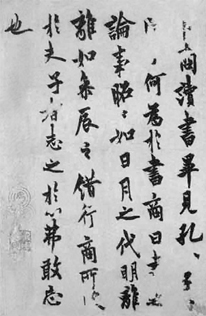 商讀書畢見孔〻子〻
何為於書商曰書之
論事昭〻如日月之代明離〻
離如參辰之錯行商所受
於夫子者志之於心弗敢忘
也